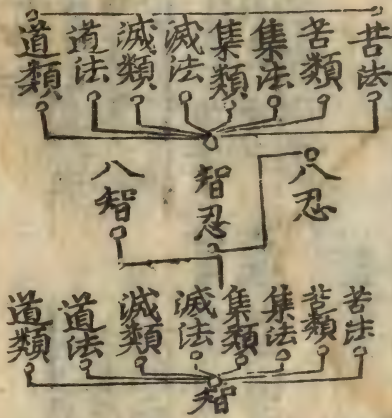 苦法
苦類
集法
集類
滅法
滅類
道法
道類
八忍
智忍
八智
苦法
苦類
集法
集類
滅法
滅類
道法
道類
智